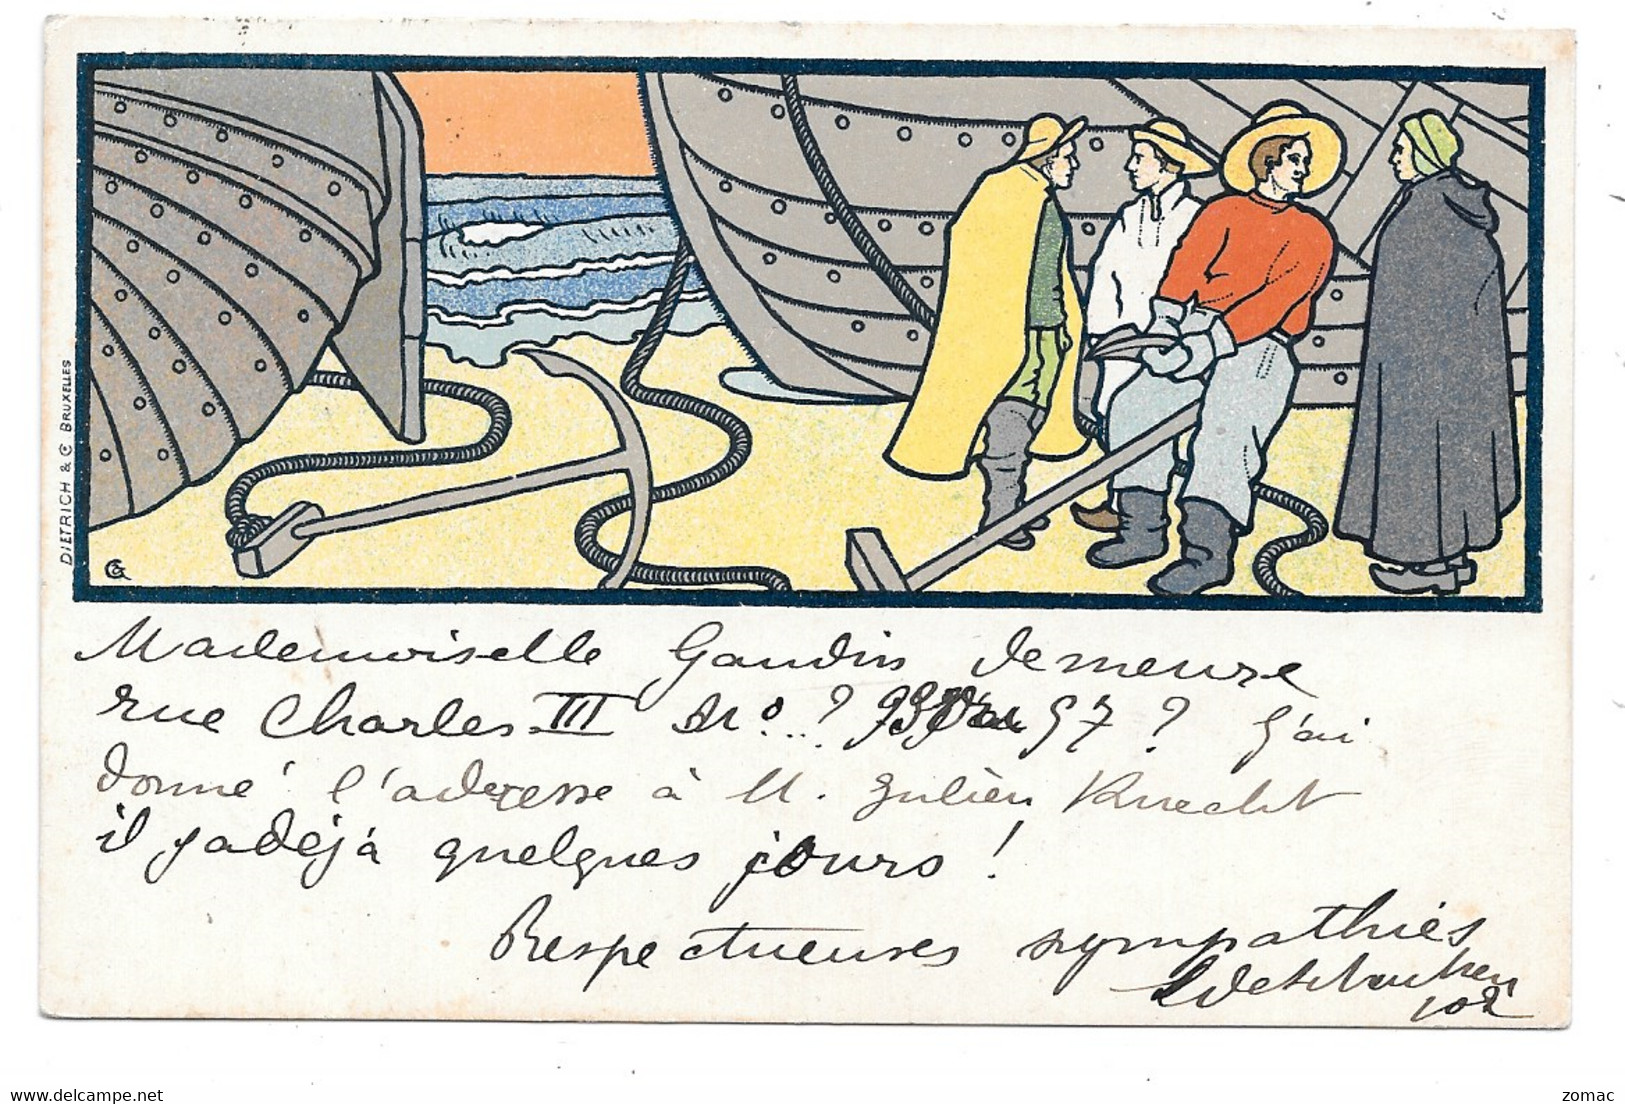 DIETRICH & Cº BRUXELLES
Mademoiselle Gaudin demeure
rue Charles III No..? 57? J'ai
donné l'adresse à M. Julien Knecht
il y a déjà quelques jours!
Respectueuses sympathies
zomac